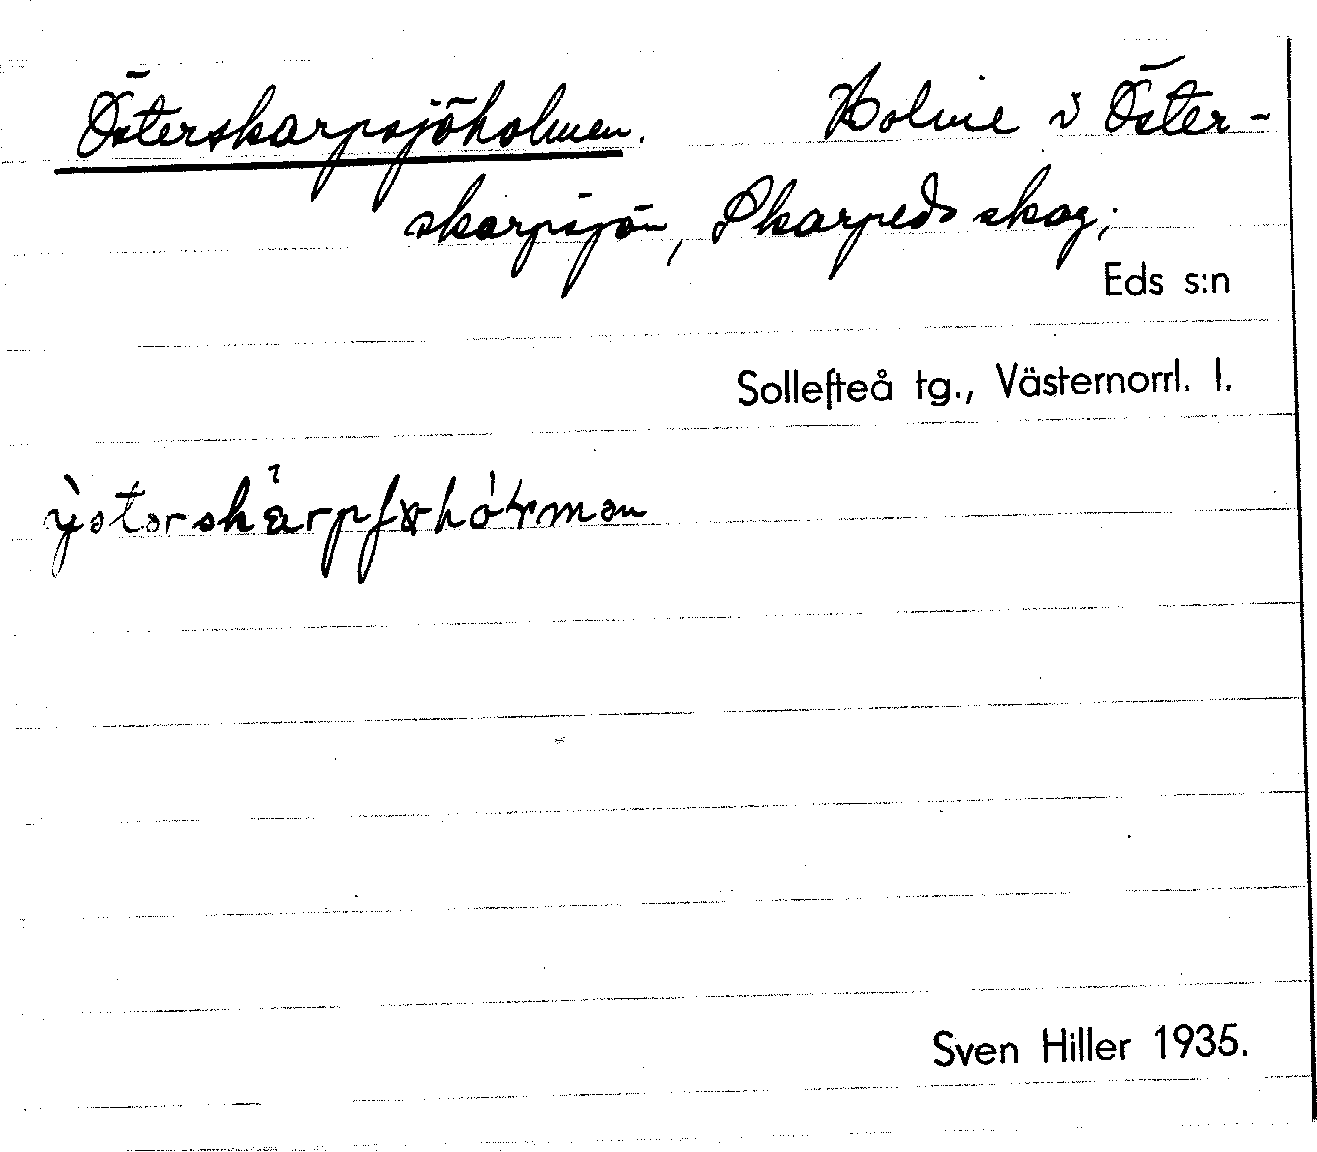 Österskarpsjöholmen. Holme i Öster-
skarpsjön, Skarpeds skog;
Eds s:n
Sollefteå tg., Västernorrl. l.
Sven Hiller 1935.